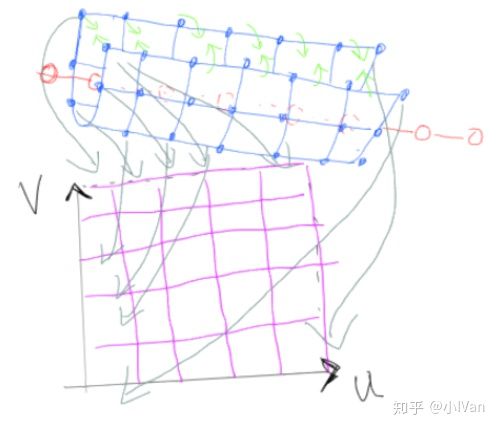 V
u
知乎 @小IVan